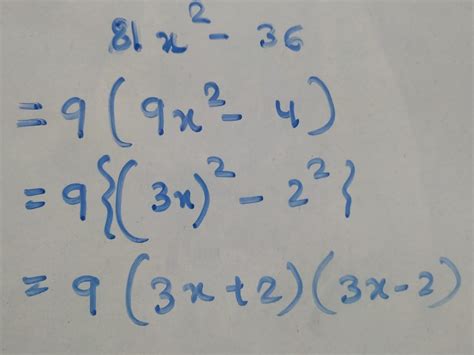 81x² - 36
= 9(9x² - 4)
= 9{(3x)² - 2²}
= 9(3x+2)(3x-2)